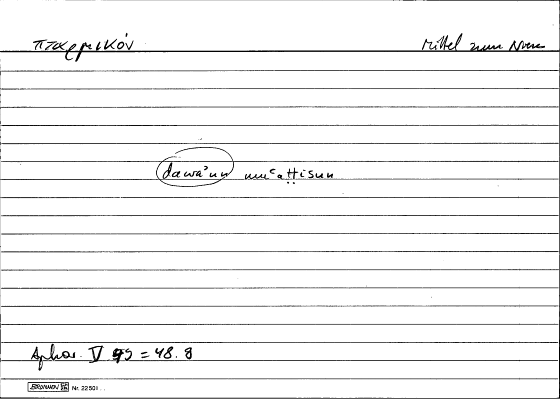 πταρμικόν Mittel zum Niesen
dawā'un mu‘aṭṭisun
Aphor. V 49 = 48. 8
BRUNNEN Nr. 22501